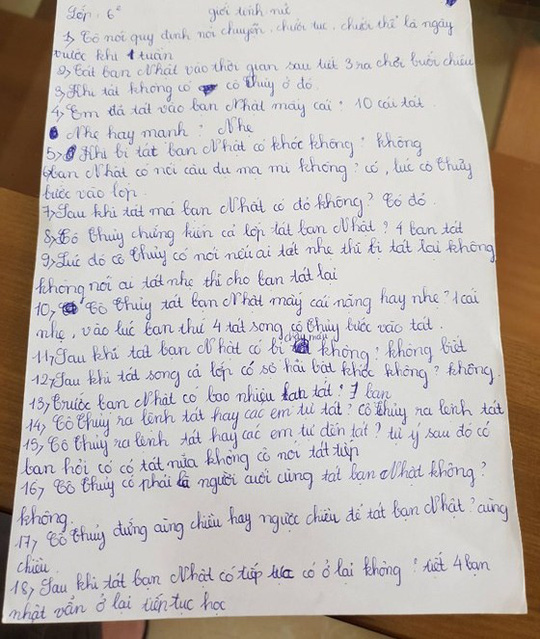 Lớp: 6² giới tính nữ
1, Cô nói quy định nói chuyện, chửi tục, chửi thề là ngày
trước khi 1 tuần
2, Tát bạn Nhật vào thời gian sau tiết 3 ra chơi buổi chiều
3, Khi tát không có cô Thủy ở đó.
4, Em đã tát vào bạn Nhật mấy cái? 10 cái tát
Nhẹ hay mạnh? Nhẹ
5, Khi bị tát bạn Nhật có khóc không? không
6, bạn Nhật có nói câu du ma mi không? có, lúc cô Thủy
bước vào lớp.
7, Sau khi tát má bạn Nhật có đỏ không? Có đỏ
8, Cô Thủy chứng kiến cả lớp tát bạn Nhật? 4 bạn tát
9, Lúc đó cô Thủy có nói nếu ai tát nhẹ thì bị tát lại không
không nói ai tát nhẹ thì cho bạn tát lại
10, Cô Thủy tát bạn Nhật mấy cái nặng hay nhẹ? 1 cái
nhẹ, vào lúc bạn thứ 4 tát song cô Thủy bước vào tát.
11, Sau khi tát bạn Nhật có bị chảy máu không? không biết
12, Sau khi tát song cả lớp có sợ hãi bật khóc không? không.
13, trước bạn Nhật có bao nhiêu bạn tát? 7 bạn
14, Cô Thủy ra lệnh tát hay các em tự tát? Cô Thủy ra lệnh tát
15, Cô Thủy ra lệnh tát hay các em tự đến tát? tự ý sau đó có
bạn hỏi cô có tát nữa không cô nói tát tiếp
16, Cô Thủy có phải là người cuối cùng tát bạn Nhật không?
không.
17, Cô Thủy đứng cùng chiều hay ngược chiều để tát bạn Nhật? cùng
chiều.
18, Sau khi tát bạn Nhật có tiếp tục có ở lại không? tiết 4 bạn
nhật vẫn ở lại tiếp tục học